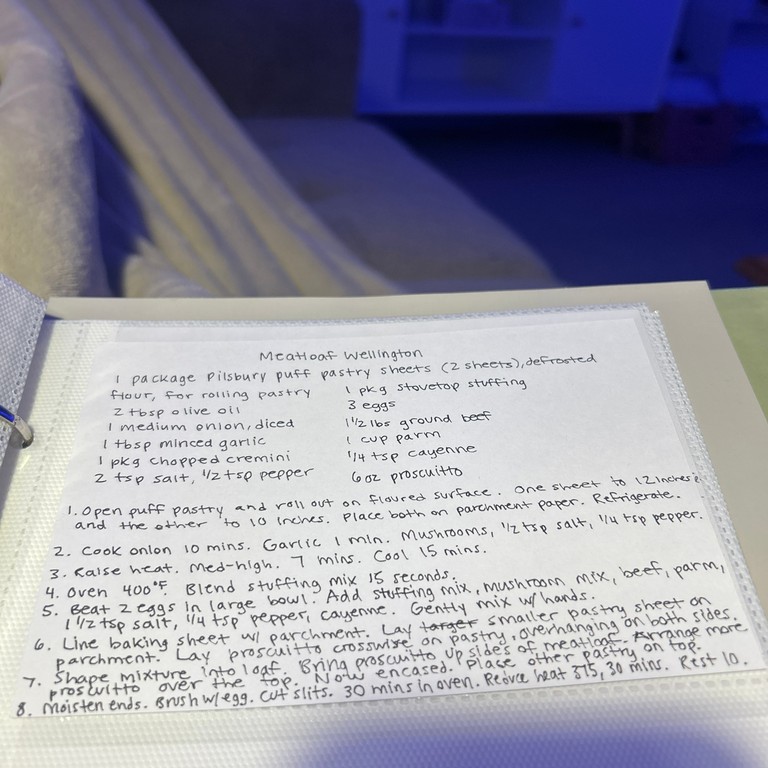 Meatloaf Wellington
1 package Pilsbury puff pastry sheets (2 sheets), defrosted
flour, for rolling pastry
2 tbsp olive oil
1 medium onion, diced
1 tbsp minced garlic
1 pkg chopped cremini
2 tsp salt, 1/2 tsp pepper
1 pkg stovetop stuffing
3 eggs
1 1/2 lbs ground beef
1 cup parm
1/4 tsp cayenne
6 oz proscuitto
1. Open puff pastry and roll out on floured surface. One sheet to 12 inches
and the other to 10 inches. Place both on parchment paper. Refrigerate.
2. Cook onion 10 mins. Garlic 1 min. Mushrooms, 1/2 tsp salt, 1/4 tsp pepper.
3. Raise heat. Med-high. 7 mins. Cool 15 mins.
4. Oven 400°F. Blend stuffing mix 15 seconds.
5. Beat 2 eggs in large bowl. Add stuffing mix, mushroom mix, beef, parm,
1 1/2 tsp salt, 1/4 tsp pepper, cayenne. Gently mix w/ hands.
6. Line baking sheet w/ parchment. Lay larger smaller pastry sheet on
parchment. Lay proscuitto crosswise on pastry, overhanging on both sides.
7. Shape mixture into loaf. Bring proscuitto up sides of meatloaf. Arrange more
proscuitto over the top. Now encased. Place other pastry on top.
8. Moisten ends. Brush w/ egg. Cut slits. 30 mins in oven. Reduce heat 375, 30 mins. Rest 10.